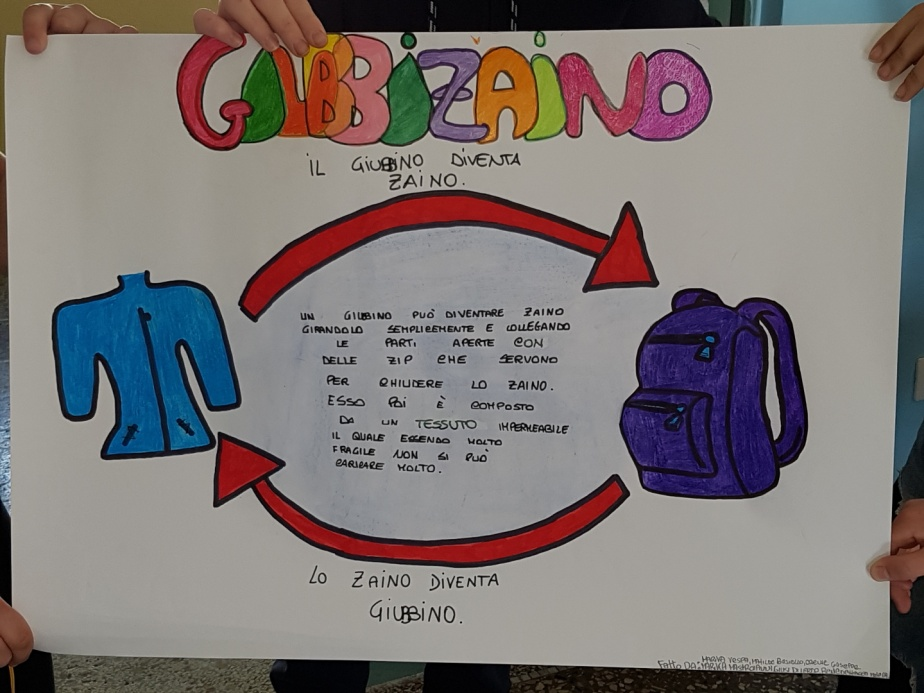 GIUBBIZAINO
IL GIUBBINO DIVENTA
ZAINO.
UN GIUBBINO PUÒ DIVENTARE ZAINO
GIRANDOLO SEMPLICEMENTE E COLLEGANDO
LE PARTI APERTE CON
DELLE ZIP CHE SERVONO
PER CHIUDERE LO ZAINO.
ESSO POI È COMPOSTO
DA UN TESSUTO IMPERMEABILE
IL QUALE ESSENDO MOLTO
FRAGILE NON SI PUÒ
CARICARE MOLTO.
LO ZAINO DIVENTA
GIUBBINO.
VESPA, MATILDE
Fatto DA: MARIKA